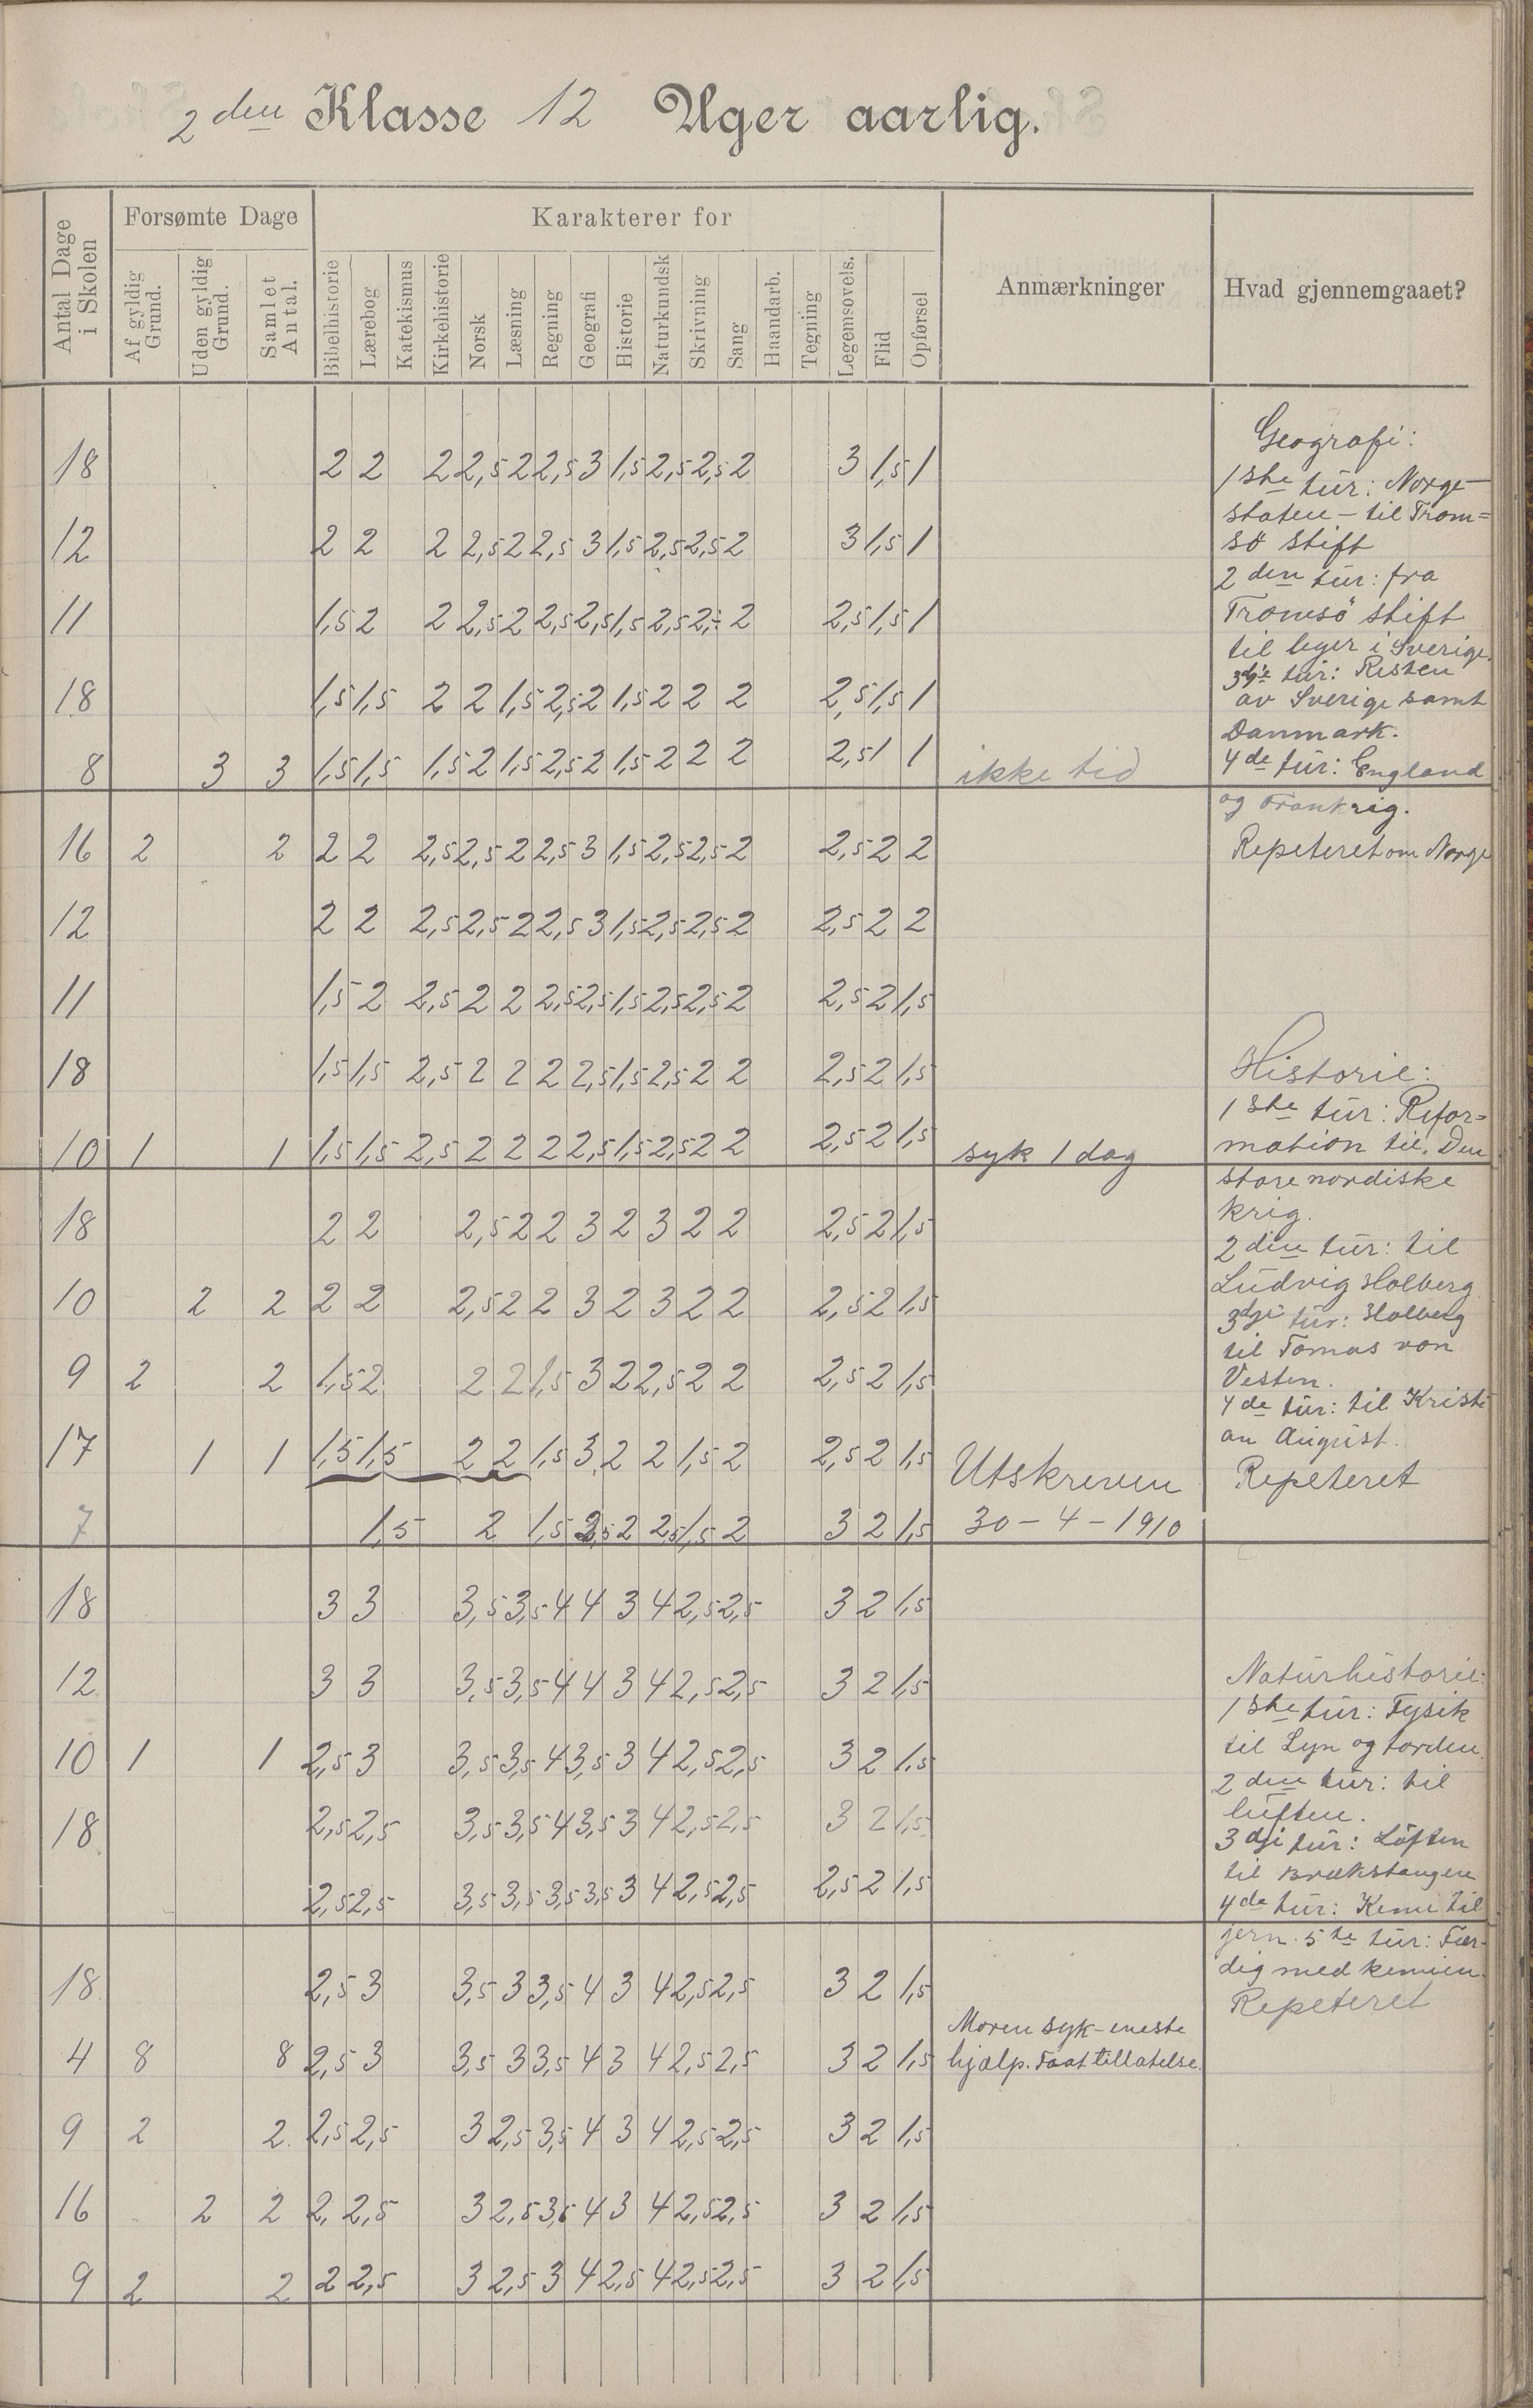 2den Klasse 12 Uger aarlig.
Antal Dage i Skolen
Forsømte Dage
Af gyldig Grund.
Uden gyldig Grund.
Samlet Antal.
Karakterer for
Bibelhistorie
Lærebog
Katekismus
Kirkehistorie
Norsk
Læsning
Regning
Geografi
Historie
Naturkundsk
Skrivning
Sang
Haandarb.
Tegning
Legemsovels.
Flid
Opførsel
Anmærkninger
Hvad gjennemgaaet?
18 2 2 2 2,5 2 2,5 3 1,5 2,5 2,5 2 3 1,5 1
12 2 2 2 2,5 2 2,5 3 1,5 2,5 2,5 2 3 1,5 1
11 1,5 2 2 2,5 2 2,5 2,5 1,5 2,5 2,5 2 2,5 1,5 1
18 1,5 1,5 2 2 1,5 2,5 2 1,5 2 2 2 2,5 1,5 1
8 3 3 1,5 1,5 1,5 2 1,5 2,5 2 1,5 2 2 2 2,5 1 1 ikke tid
16 2 2 2 2 2,5 2,5 2 2,5 3 1,5 2,5 2,5 2 2,5 2 2
12 2 2 2,5 2,5 2 2,5 3 1,5 2,5 2,5 2 2,5 2 2
11 1,5 2 2,5 2 2 2,5 2,5 1,5 2,5 2,5 2 2,5 2 1,5
18 1,5 1,5 2,5 2 2 2 2,5 1,5 2,5 2 2 2,5 2 1,5
10 1 1 1,5 1,5 2,5 2 2 2 2,5 1,5 2,5 2 2 2,5 2 1,5 syk 1 dag
18 2 2 2,5 2 2 3 2 3 2 2 2,5 2 1,5
10 2 2 2 2 2,5 2 2 3 2 3 2 2 2,5 2 1,5
9 2 2 1,5 2 2 2 1,5 3 2 2,5 2 2 2,5 2 1,5
17 1 1 1,5 1,5 2 2 1,5 3 2 2 1,5 2 2,5 2 1,5 Utskreven
7 1,5 2 1,5 2,5 2 2,5 1,5 2 3 2 1,5 30-4-1910
18 3 3 3,5 3,5 4 4 3 4 2,5 2,5 3 2 1,5
12 3 3 3,5 3,5 4 4 3 4 2,5 2,5 3 2 1,5
10 1 1 2,5 3 3,5 3,5 4 3,5 3 4 2,5 2,5 3 2 1,5
18 2,5 2,5 3,5 3,5 4 3,5 3 4 2,5 2,5 3 2 1,5
2,5 2,5 3,5 3,5 3,5 3,5 3 4 2,5 2,5 2,5 2 1,5
18 2,5 3 3,5 3 3,5 4 3 4 2,5 2,5 3 2 1,5
Moren syk-eneste
4 8 8 2,5 3 3,5 3 3,5 4 3 4 2,5 2,5 3 2 1,5 hjælp. Faat tillatelse.
9 2 2 2,5 2,5 3 2,5 3,5 4 3 4 2,5 2,5 3 2 1,5
16 2 2 2, 2,5 3 2,5 3,5 4 3 4 2,5 2,5 3 2 1,5
9 2 2 2 2,5 3 2,5 3 4 2,5 4 2,5 2,5 3 2 1,5
Geografi:
1ste tur: Norge
staten - til Trom=
sö stift
2den tur: fra
Tromsö stift
til leger i Sverige.
3dje tur: Resten
av Sverige samt
Danmark.
4de tur: England
og Frankrig.
Repeteret om Norge
Historie:
1ste tur: Refor=
mation til. Den
store nordiske
krig.
2den tur: til
Ludvig Holberg.
3dje tur: Holberg
til Tomas von
Vesten.
4de tur: til Kristi
an August.
Repeteret
Naturhistorie:
1ste tur: Fysik
til Lyn og torden.
2den tur: til
luften.
3dje tur: Luften
til Brækstangen
4de tur: Kemi til
jern. 5te tur: Fær-
dig med kemien.
Repeteret